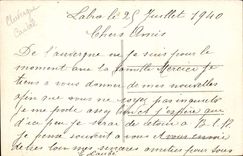 Labro le 25 Juillet 1940
Chers Amis
De l'auvergne ou je suis pour le
moment avec la famille Mercier je
tiens a vous donner de mes nouvelles
afin que vous ne soyez pas inquiets
je me porte assez bien et j'espère que
d'ici peu je serai de retour a
je pense souvent a vous et vous envoie
de tres loin mes sincères amitiés pour tous